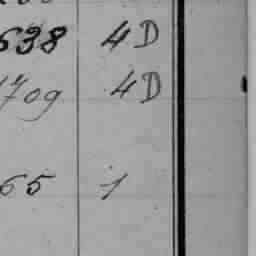 638 4D
1709 4D
65 1